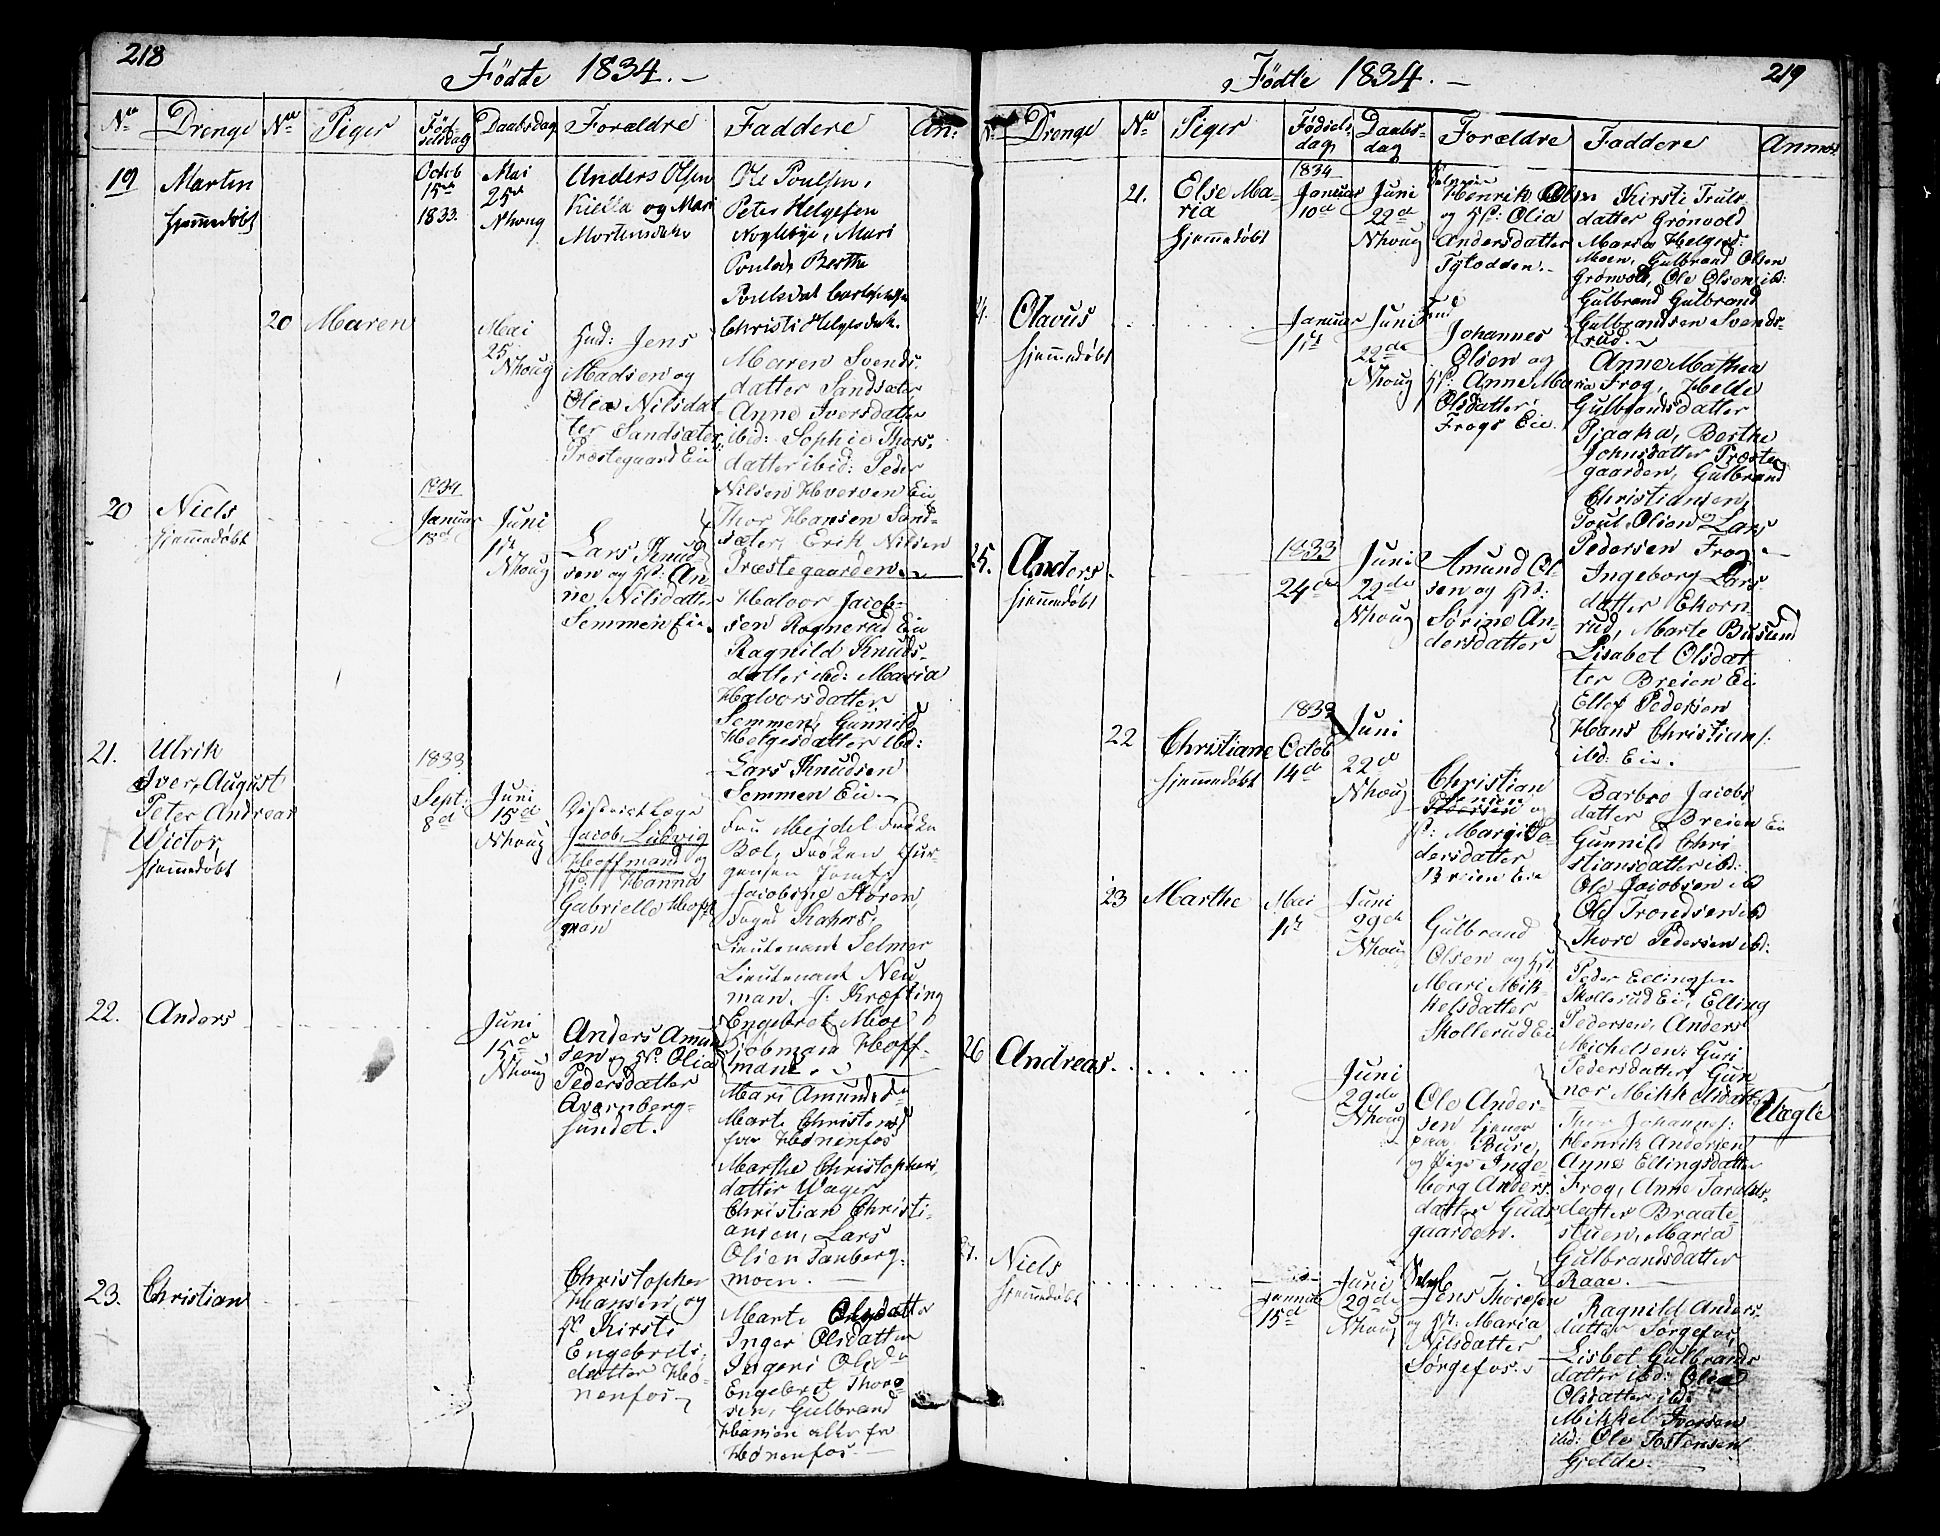 218
Födte 1834.
Nr Drenge Nr Piger Fød- selsdag Daabsdag Forældre Faddere An:
19 Martin
hjemmedøbt
Octob
15de
1833.
Mai
25de
Nhoug
Anders Olsen
Kiella og Mari
Mortensdatter
Ole Poulsen,
Peter Helgesen
Noglebye, Mari
Poulsd. Berthe
Poulsdat
Christi Helgesdat.
20 Maren
Mai
25
Nhoug
Hud: Jens
Madsen og
Olia Nilsdat
ter Sandsæter
Præstegaard Eie
Maren Svends
datter Sandsæter
Anne Iversdatter
ibid: Sophie Thors
datter ibid: Peder
Nilsen Hverven Eie
Thor Hansen Sand-
sæter, Erik Nilsen
Præstegaarden
20 Niels
hjemmedøbt
1834
Januar
18de
Juni
1ste
Nhoug
Lars Knud
sen og Hst: An-
ne Nilsdatter
Semmen Eie.
Halvor Jacob-
sen Rognerud Eie
Ragnild Knuds-
datter ibid: Maria
Halvorsdatter
Semmen, Gunnild
Helgesdatter ibd:
Lars Knudsen
Semmen Eie
21. Ulrik
Iver, August
Peter Andreas
Victor,
hjemmedøbt
1833
Sept:
8de
Juni
15de
Nhoug
Districtslæge
Jacob Ludvig
Hoffmand og
Hst: Hanna
Gabrielle Hoff
man
Fru Mejdel Frøken
Bol, Frøken Jur-
gensen Jomfr
Jacobine Støren
Lieutenant Selmer
Lieutenant Neu
man, J. Kræfting
Engebret Moe
Kjøbmand Hoff-
mand.
22. Anders
Juni
15de
Nhoug
Anders Amun
sen og Hst: Olia
Pedersdatter
Avernberg-
sundet.
Mari Amundsd
Marte Christens
fra Hønenfos
Marthe Christophers
datter Wager
Christian Christi-
ansen, Lars
Olsen Tanberg-
moen.
23. Christian
Christopher
Hansen og
Hst Kirsti
Engebrets-
datter Hø-
nenfos
Marte Olsdatter
Inger Olsdatter
Ingeri Olsd
Engebret Thor-
sen, Gulbrand
Hansen alle fra
Hønenfos
219
Födte 1834.
Nr Drenge Nr Piger Fødsels- dag Daabs- dag Forældre Faddere Anmer
21. Else Ma-
ria
hjemmedøbt
1834
Januar
10de
Juni
22de
Nhoug
Henrik Olsen
og Hst: Olia
Andersdatter
Tytodden
Kirsti Truls
datter Grønvold
Maria Helgesd:
Moen, Gulbrand Olsen
Grønvold, Ole Olsen ibd:
Gulbrand Gulbrand
Gulbrandsen Svends-
rud.
24. Olavus
hjemmedøbt
Januar
1ste
Juni
22de
Nhoug
Johannes
Olsen og
Hst: Anne Maria
Olsdatter
Frogs Eie
Anne Mathea
Frog, Helde
Gulbrandsdatter
Pjaaka, Berthe
Johnsdatter Præste
gaarden, Gulbrand
Christiansen,
Poul Olsen og Lars
Pedersen Frog
25. Anders
hjemmedøbt
1833
24de
Juni
22de
Nhoug
Amund Ol-
sen og Hst:
Sørine An-
dersdatter
Ingeborg Lars
datter Ekorn-
rud, Marte Busund
Lisabet Olsdat
ter Breien Eie
Ellef Pedersen
Hans Christians:
ibd: Eie.
22 Christiane
hjemmedøbt
1833
Octob
14de
Juni
22de
Nhoug
Christian
og
Hst: Margit Pe
dersdatter
Breien Eie
Barbro Jacobs
datter Breien Eie
Gunnild Chri
stiansdatter ibd:
Ole Jacobsen ibd
Ole Trondsen ibd
Thore Pedersen ibd:
23 Marthe
Mai
1ste
Juni
29de
Nhoug
Gulbrand
Olsen og Hst
Mari Mik-
kelsdatter
Skollerud Eie
Peder Ellingsen
Skollerud Eie, Elling
Pedersen, Anders
Michelsen, Guri
Pedersdatter, Gun-
nor Mikkelsdatter
26 Andreas
Juni
29de
Nhoug
Ole Ander-
sen tjener
paa Bure,
og Pige Inge-
borg Anders
datter Guds-
gaarden.
Thor Johannes:
Henrik Andersen
Anne Ellingsdatter
Frog, Anne Taralds-
datter Braate-
stuen, Maria
Gulbrandsdatter
Raae.
Uægte
27. Niels
hjemmedøbt
Januar
15de
Juni
29de
Nhoug
Jens Thoresen
og Hst: Maria
Nilsdatter
Sørgefos.
Ragnild Anders
datter Sørgefos,
Lisbet Gulbrands
datter ibd: Olia
Olsdatter ibd:
Mikkel Iversen
ibd: Ole Tostensen
Gjelde.